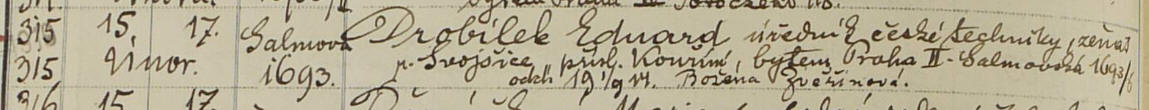 315 15. 17. Salmova Drobílek Eduard úředník české techniky, ženat
315 Únor. 1693. p. Svojšice, přísl. Kouřim, bytem Praha II-Salmovská 1693/6
odch 19 1/9 14. Božena Zvěřinová.
316 15 17.